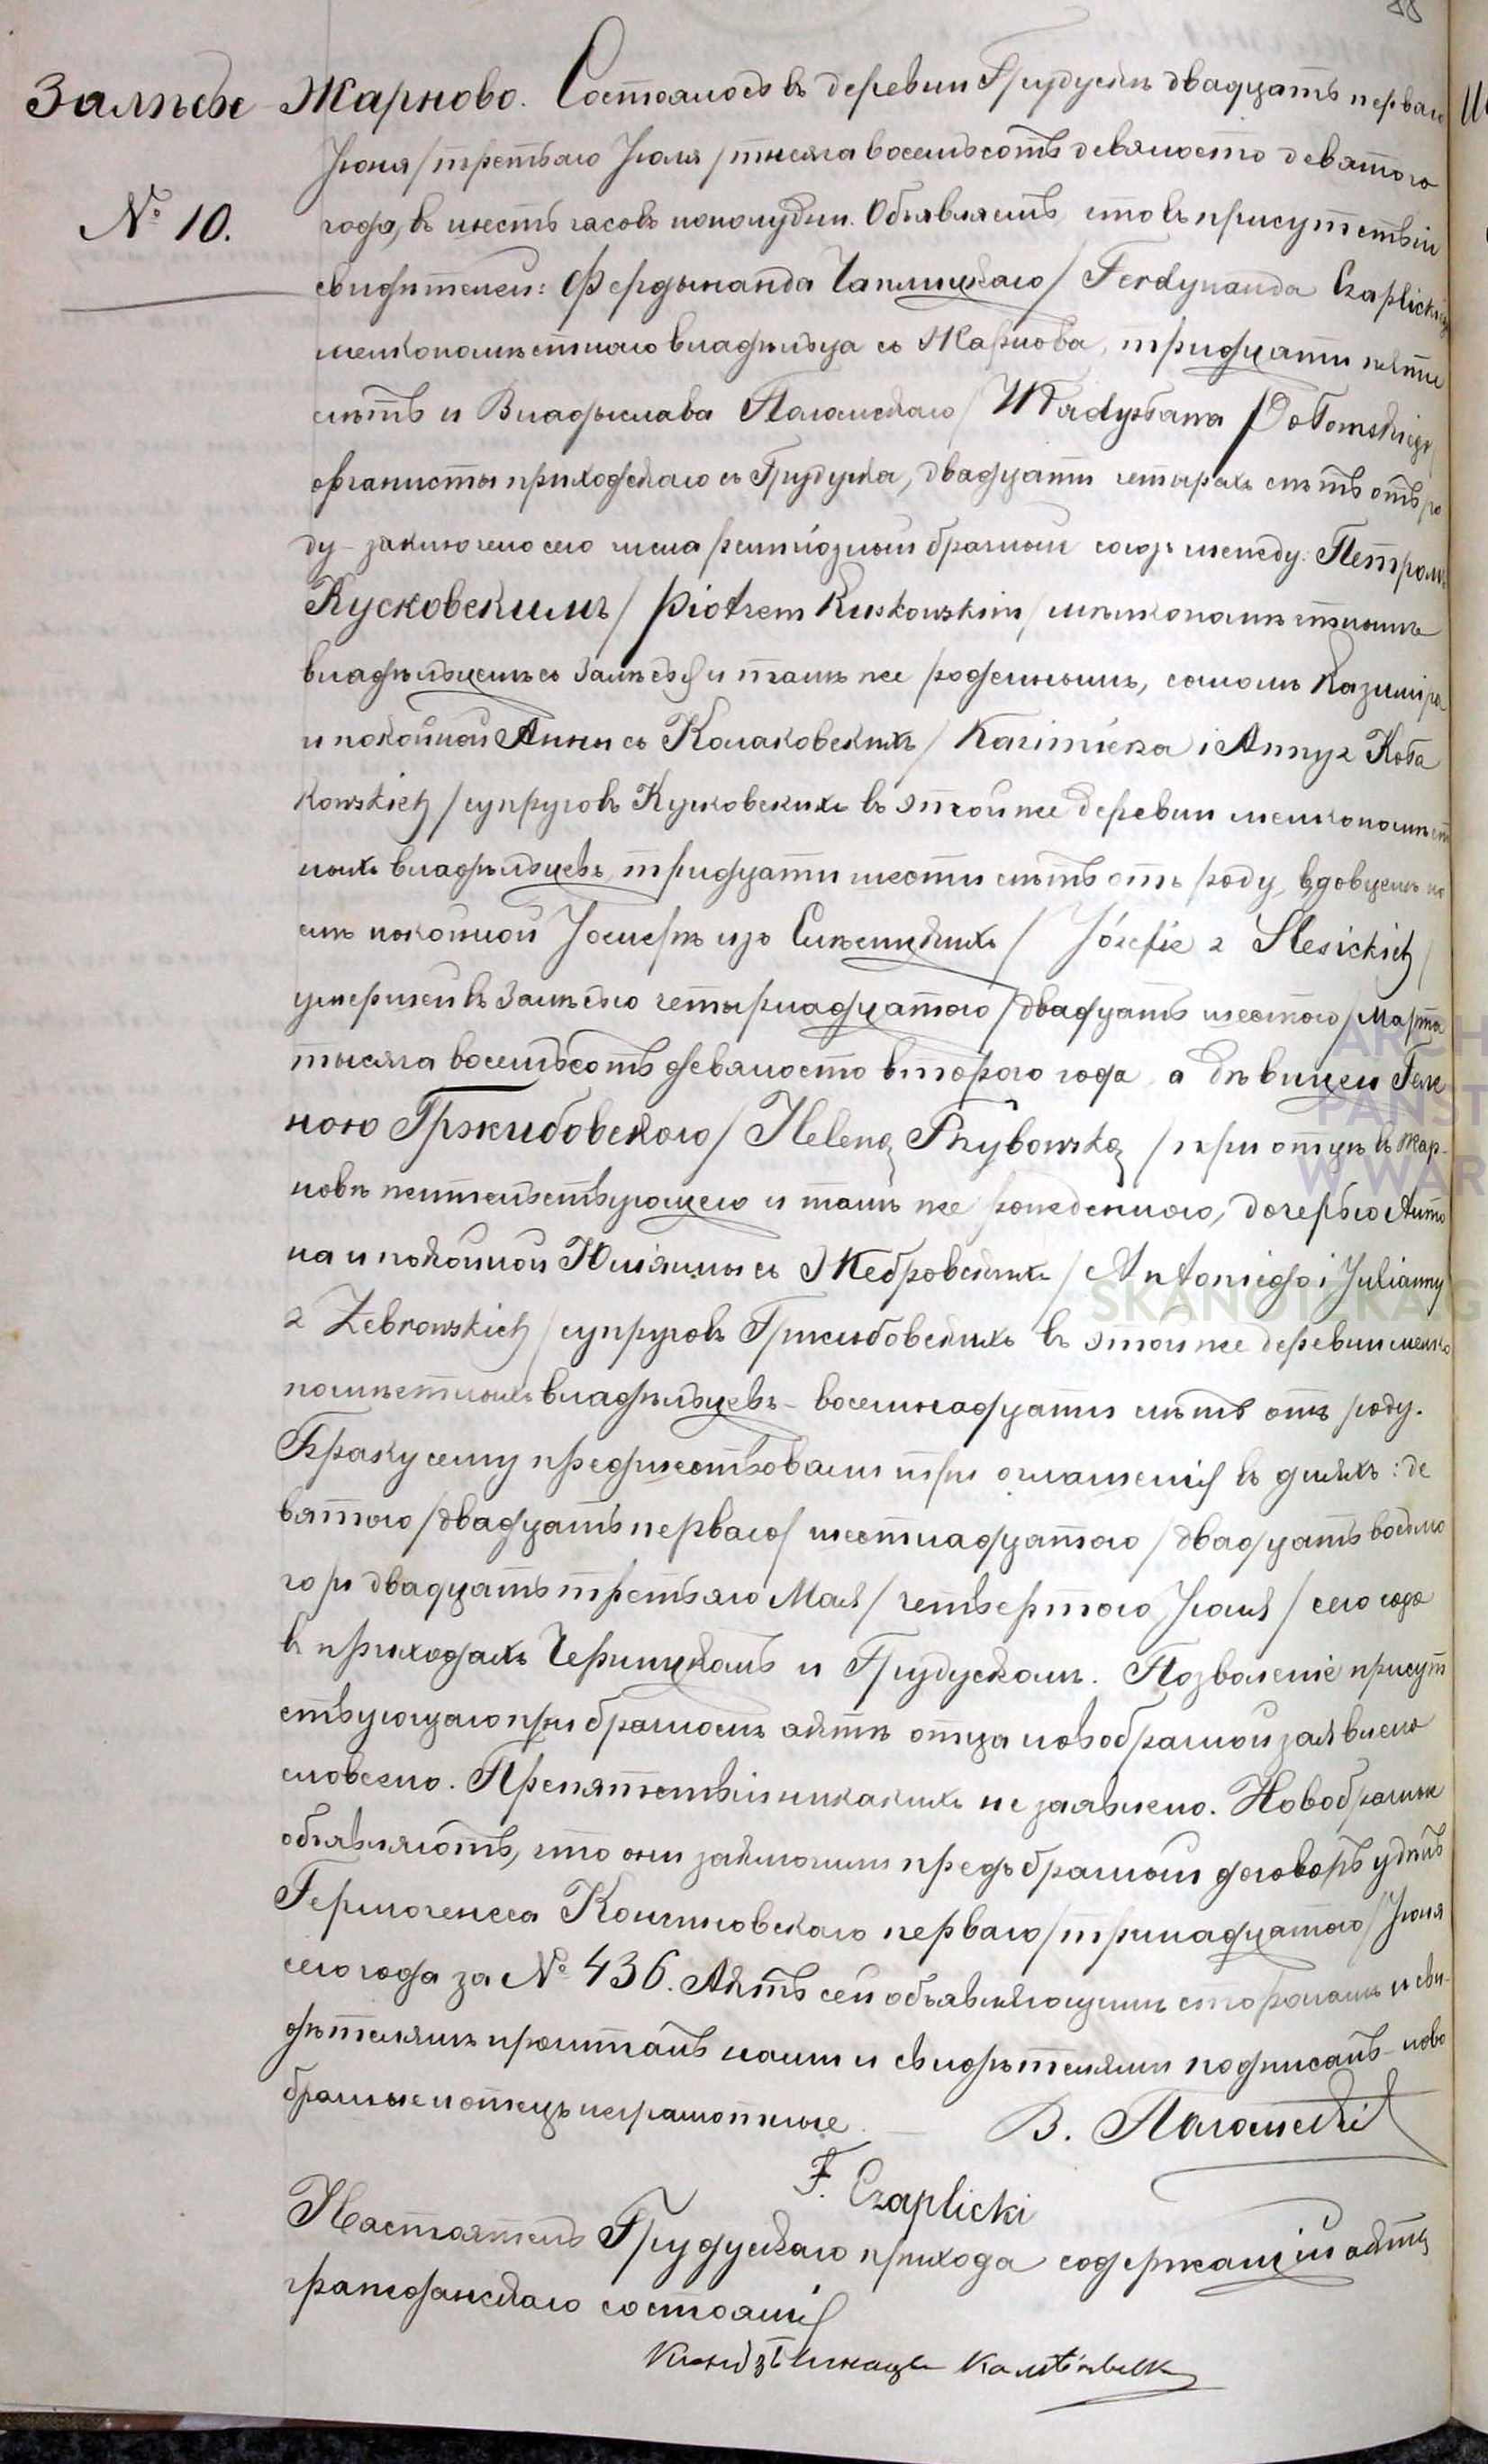 88
Залѣсье - Жарново. Состоялось въ деревни Грудускъ двадцать перваго
№ 10. Іюня /третьяго Іюля/ тысяча восемьсотъ девяносто девятого
года, въ шесть часовъ пополудни. Объявляемъ что въ присутствіи
свидѣтелей: Фердынанда Чаплицкаго / Ferdynanda Czaplickiego
мелкопомѣстнаго владѣльца съ Жарнова, тридцати пяти
лѣтъ и Владыслава Паломскаго / Władysława Połomskiego /
органисты приходскаго съ Грудуска, двадцати четырехъ лѣтъ отъ ро
ду - заключено сего числа религіозный брачный союзъ между: Петромъ
Кусковскимъ / Piotrem Kuskowskim / мѣлкопомѣстнымъ
владѣльцемъ съ Залѣсья и тамъ же рожденнымъ, сыномъ Казиміра
и покойной Анны съ Колаковскихъ / Kazimierza i Anny z Koła
kowskich / супруговъ Кусковскихъ въ этой же деревни мелкопомѣст
ныхъ владѣльцевъ, тридцати шести лѣтъ отъ роду, вдовцемъ по
емъ покойной Іосифѣ изъ Слѣсицкихъ / Józefie z Slesickich /
умершей въ Залѣсью четырнадцатого / двадцать шестого / Марта
тысяча восемьсотъ девяносто второго года, а дѣвицей Геле
ною Гржибовского / Heleną Grzybowską / при отцѣ въ Жар-
новѣ жительствующею и тамъ же рожденною, дочерью Анто
на и покойной Юліянны съ Жебровскихъ / Antoniego i Julianny
z Żebrowskich / супруговъ Гржибовскихъ въ этой же деревни мелко
помѣстныхъ владѣльцевъ - восемнадцати лѣтъ отъ роду.
Браку сему предшествовали три оглашенія въ дняхъ: де
вятого / двадцать перваго / шестнадцатого / двадцать восьмо
го / и двадцать третьяго Мая / четвертого Іюня / сего года
въ приходахъ Черницкомъ и Грудускомъ. Позволеніе присут
ствующаго при брачномъ актѣ отца новобрачной заявлено
словесно. Препятствій никакихъ не заявлено. Новобрачные
объявляютъ, что они заключили предъбрачный договоръ у
Гермогенеса Кончиковскаго перваго / тринадцатого / Іюня
сего года за № 436. Актъ сей объявляющимъ сторонамъ и сви-
дѣтелямъ прочитанъ нами и свидѣтелями подписанъ - ново
брачные и отецъ неграмотные.
В. Паломскій
F. Czaplicki
Настоятель Грудускаго прихода содержащій акты
гражданскаго состоянія
Ксендзъ